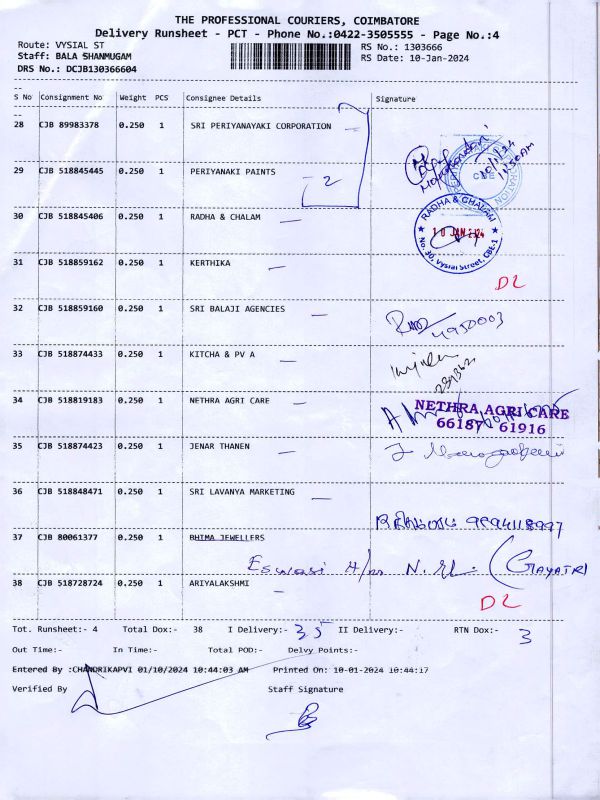 THE PROFESSIONAL COURIERS, COIMBATORE
Delivery Runsheet - PCT - Phone No.:0422-3505555 - Page No.:4
Route: VYSIAL ST RS No.: 1303666
Staff: BALA SHANMUGAM RS Date: 10-Jan-2024
DRS No.: DCJB130366604
--
S No Consignment No Weight PCS Consignee Details Signature
--
28 CJB 89983378 0.250 1 SRI PERIYANAYAKI CORPORATION
10/1/24
11:50AM
CBE
29 CJB 518845445 0.250 1 PERIYANAKI PAINTS
2
30 CJB 518845406 0.250 1 RADHA & CHALAM
RADHA & CHALAM
10 JAN 2024
No: 30, Vysial Street, CBE-1
31 CJB 518859162 0.250 1 KERTHIKA
D2
32 CJB 518859160 0.250 1 SRI BALAJI AGENCIES
33 CJB 518874433 0.250 1 KITCHA & PV A
34 CJB 518819183 0.250 1 NETHRA AGRI CARE
NETHRA AGRI CARE
66187 61916
35 CJB 518874423 0.250 1 JENAR THANEN
36 CJB 518848471 0.250 1 SRI LAVANYA MARKETING
9994118997
37 CJB 80061377 0.250 1 BHIMA JEWELLERS
(GAYATRI
38 CJB 518728724 0.250 1 ARIYALAKSHMI
D2
Tot. Runsheet:- 4 Total Dox:- 38 I Delivery:- 35 II Delivery:- RTN Dox:- 3
Out Time:- In Time:- Total POD:- Delvy Points:-
Entered By :CHANDRIKAPVI 01/10/2024 10:44:03 AM Printed On: 10-01-2024 10:44:17
Verified By Staff Signature